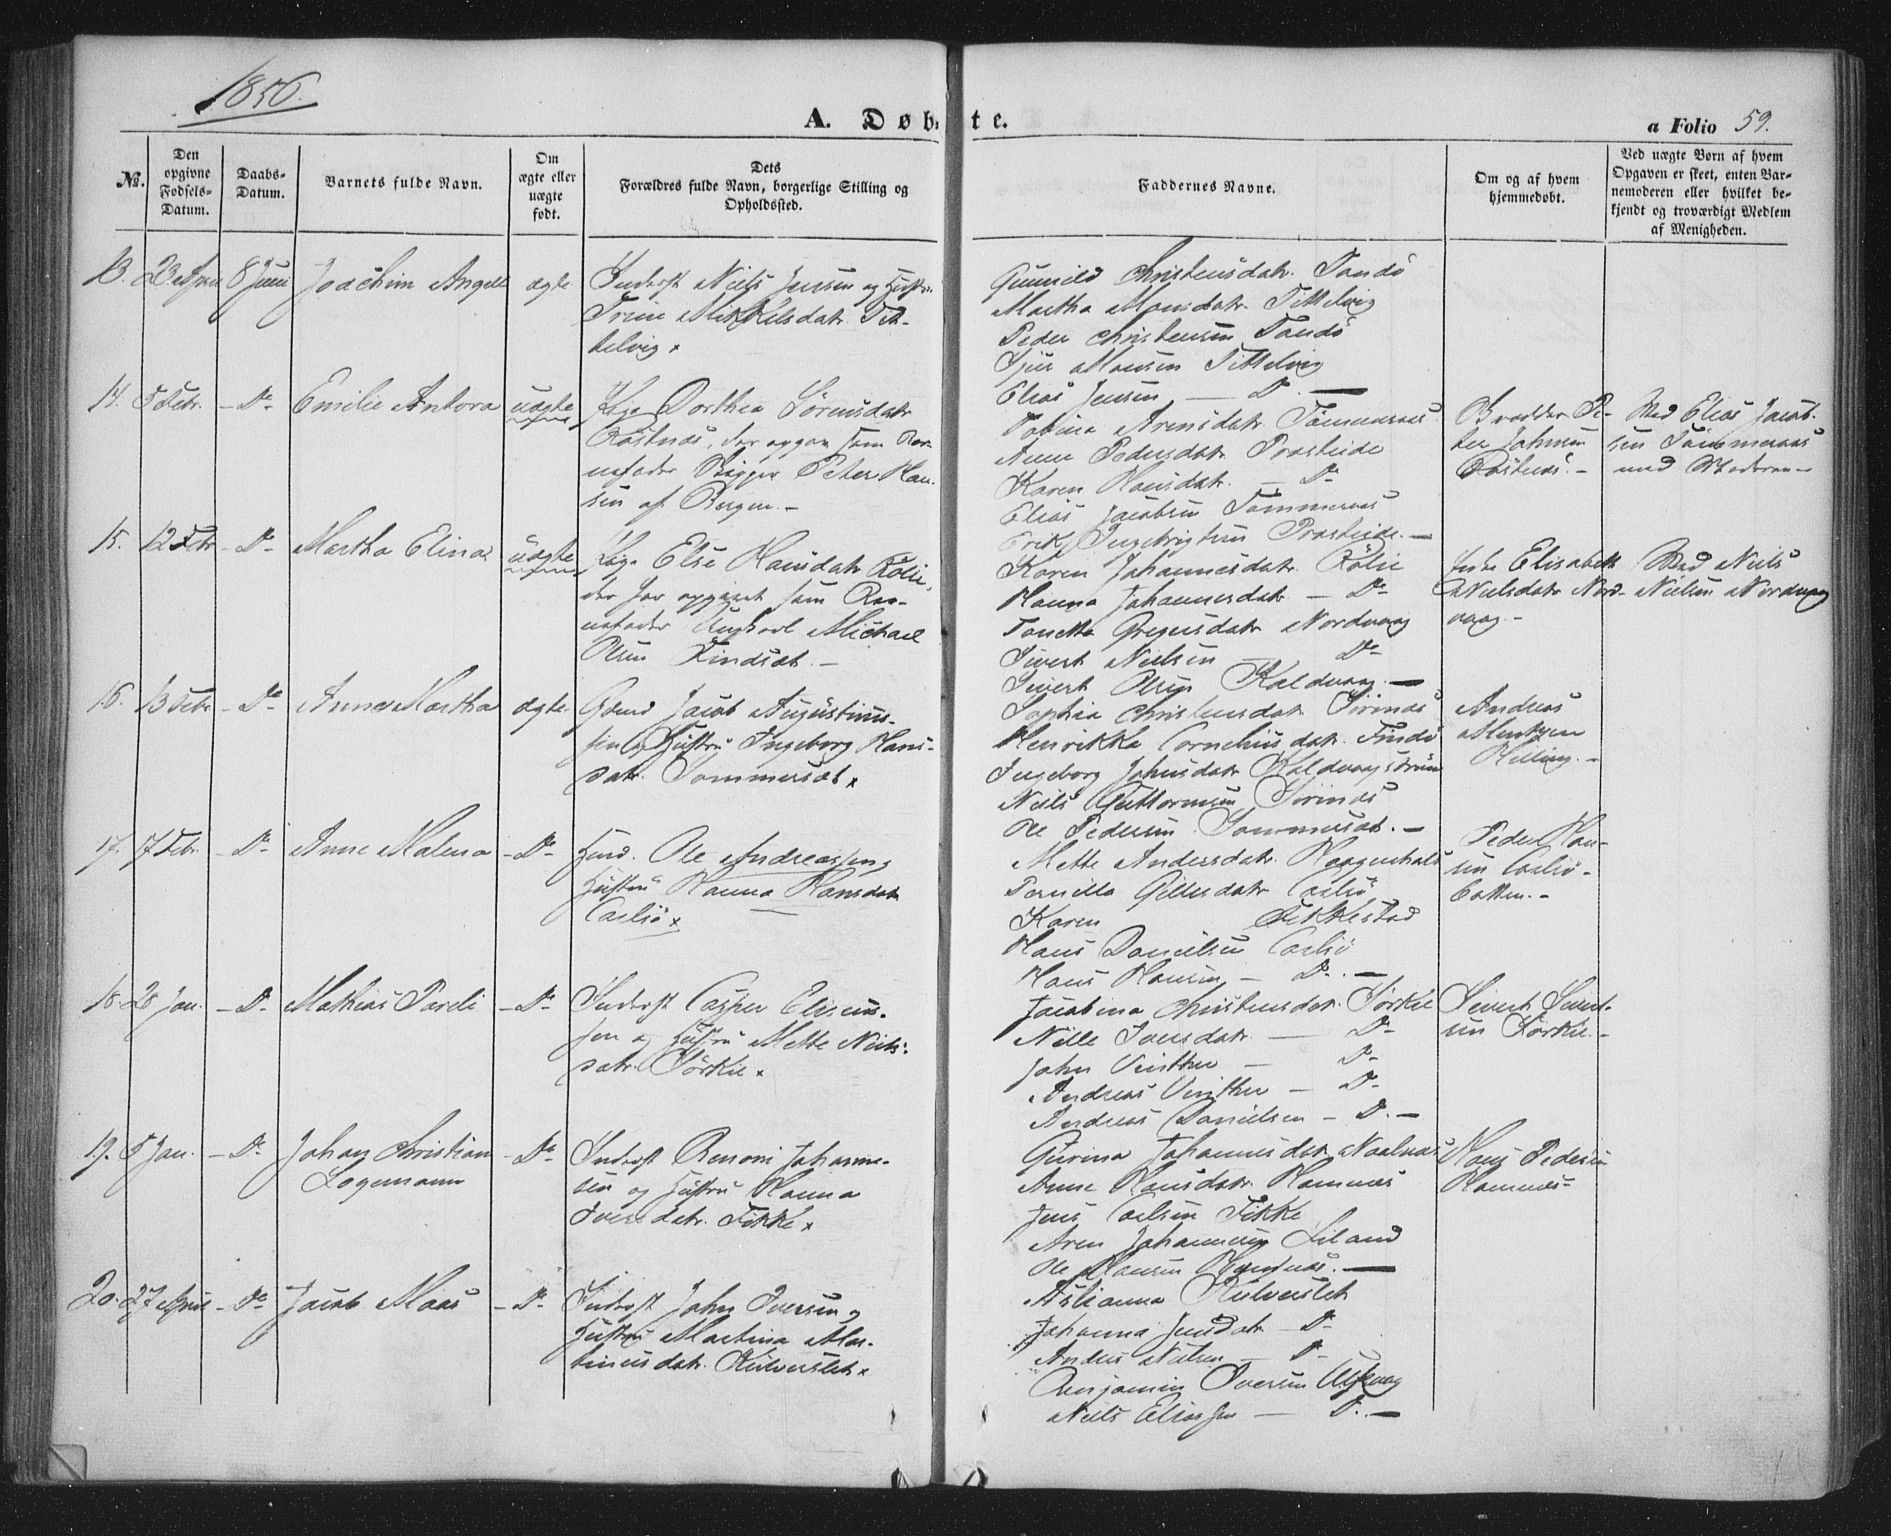 1856.
A. Døbte.
a Folio 59.
No.
Den opgivne Fødsels-Datum.
Daabs-Datum.
Barnets fulde Navn.
Om ægte eller uægte født.
Dets Forældres fulde Navn, borgerlige Stilling og Opholdssted.
Faddernes Navne.
Om og af hvem hjemmedøbt.
Ved uægte Børn af hvem Opgaven er skeet, enten Barnemoderen eller hvilket bekjendt og troværdigt Medlem af Menigheden.
13. 23 April 8 Juni Joachim Angell ægte
Inderst Niels Jensen og Hustru
Trine Mikkelsdatr. Tit-
telvig
Gunnild Christensdatr. Sandø
Martha Monsdatr. Tittelvig
Peder Christensen Sandø
Sjur Monsen Tittelvig
Elias Jensen — Do —
14. 5 Febr. — Do Emilie Antora uægte
Pige Dorthea Sørensdatr
Røstnæs, der opgav som Bar-
nefader Peter Han-
sen af Bergen. —
Tobina Arensdatr. Tømmeraas
Anne Pedersdatr. Præsteide
Karen Hansdatr. — Do
Elias Jacobsen Tømmeraas
Erik Ingebrigtsen Præsteide. —
Pe-
ter Johnsen
Røstnæs. —
Med Elias Jacob-
sen Tømmeraas
med Moderen —
15. 12 Febr — Do Martha Elina uægte
Pige Else Hansdatr Rølie,
der har opgivet som Bar-
nefader Ungkarl Michael
Olsen Findsæt. —
Karen Johannesdatr. Rølie
Hanna Johannesdatr — Do
Tonetta Gregersdatr Nordvaag
Sivert Nielsen — Do
Sivert Olsen Kaldvaag. —
Elisabeth
Nielsdatr Nord-
vaag —
Med Niels
Nielsen Nordvaag
16. 13 Febr — Do Anne Martha ægte
Gbmd Jacob Augustinus-
sen og Hustru Ingeborg Hans-
datr. Sommersæt
Sophia Christensdatr. Strinds
Henrikka Corneliusdatr. Findø
Ingeborg Johnsdatr Kaldvaagstrøm
Niels Guttormsen
Ole Pedersen Sommersæt. —
Andreas
Mentzen
Helling. —
17. 17 Febr. — Do Anne Malena — Do —
Ole Andreassen,
Hustru Hanna Hansdatr
Carlsø
Mette Andersdatr. Haagenhals
Pernilla Gillesdatr Carlsø
Karen Fikkestad
Hans Danielsen Carlsø
Hans Hansen — Do. —
Peder Han-
sen Carlsø-
batten. —
18. 28 Jan. — Do Mathias Pareli — Do
Inderst Casper Eliseus-
sen og Hustru Mette Niels-
datr. Sørkil
Jacobina Christensdatr. Sørkil
Nille Iversdatr. — Do
John Vinther — Do
Andreas Vinther — Do
Andreas Danielsen — Do. —
Sivert Sivert-
sen Sørkil. —
19. 5 Jan. — Do Johan Christian — Do —
Lagemann
Inderst Benoni Johanne-
sen og Hustru Hanna
Iversdatr. Fikke
Gurina Johannesdatr Naalnæs
Anne Hansdatr. Hamnes
Jens Carlsen Fikke
Aren Johannesen Liland
Ole Hansen —
Hans Pedersen
Hamnes —
20. 27 April — Do Jacob Maas — Do
Inderst John Iversen og
Hustru Martina Mar-
tinusdatr. Kulverslet
Kulverslet
Johanna Jensdatr — Do
Anders Nielsen — Do
Benjamin Iversen Uhlvaag
Niels Eliassen — Do. —